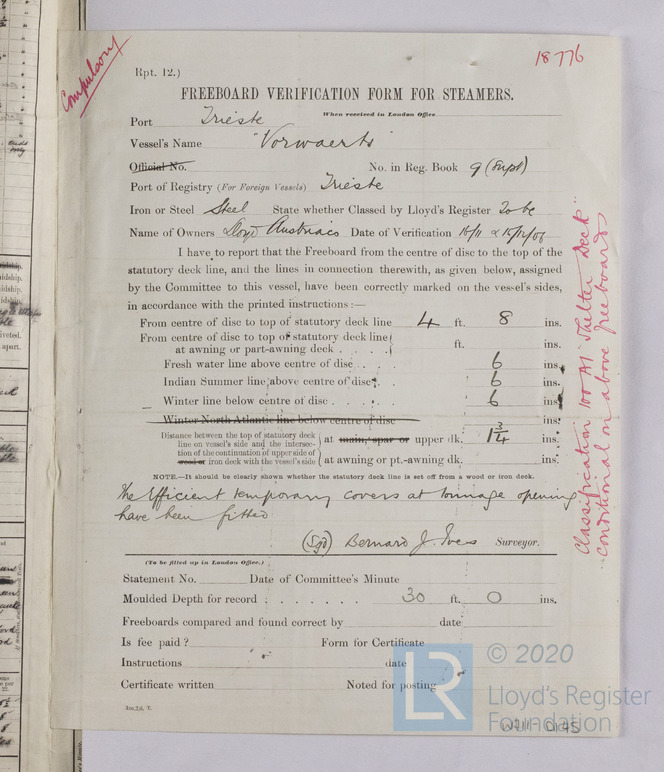 Compulsory
18776
Rpt. 12.)
FREEBOARD VERIFICATION FORM FOR STEAMERS.
When received in London Office
Port Trieste
Vessel's Name "Vorwaerts"
Official No. No. in Reg. Book 9 (Supt)
Port of Registry (For Foreign Vessels) Trieste
Iron or Steel Steel State whether Classed by Lloyd's Register To be
Name of Owners Lloyd Austriaco Date of Verification 10/11 & 15/11/06
I have to report that the Freeboard from the centre of disc to the top of the
statutory deck line, and the lines in connection therewith, as given below, assigned
by the Committee to this vessel, have been correctly marked on the vessel's sides,
in accordance with the printed instructions :—
From centre of disc to top of statutory deck line 4 ft. 8 ins.
From centre of disc to top of statutory deck line
at awning or part-awning deck . . . . ft. ins.
Fresh water line above centre of disc . . . 6 ins.
Indian Summer line above centre of disc . . 6 ins.
Winter line below centre of disc . . . . 6 ins.
Winter North Atlantic line below centre of disc ins.
Distance between the top of statutory deck
line on vessel's side and the intersec-
tion of the continuation of upper side of
wood or iron deck with the vessel's side
at main, spar or upper dk. 1 3/4 ins.
at awning or pt.-awning dk. ins.
NOTE.—It should be clearly shown whether the statutory deck line is set off from a wood or iron deck.
The efficient temporary covers at tonnage opening
have been fitted
(Sgd) Bernard J. Ives Surveyor.
(To be filled up in London Office.)
Statement No. Date of Committee's Minute
Moulded Depth for record . . . . . . . 30 ft. 0 ins.
Freeboards compared and found correct by date
Is fee paid ? Form for Certificate
Instructions date
Certificate written Noted for posting
Classification 100 A1 "Shelter Deck"
"conditional on above freeboards
LR
© 2020
Lloyd's Register
Foundation